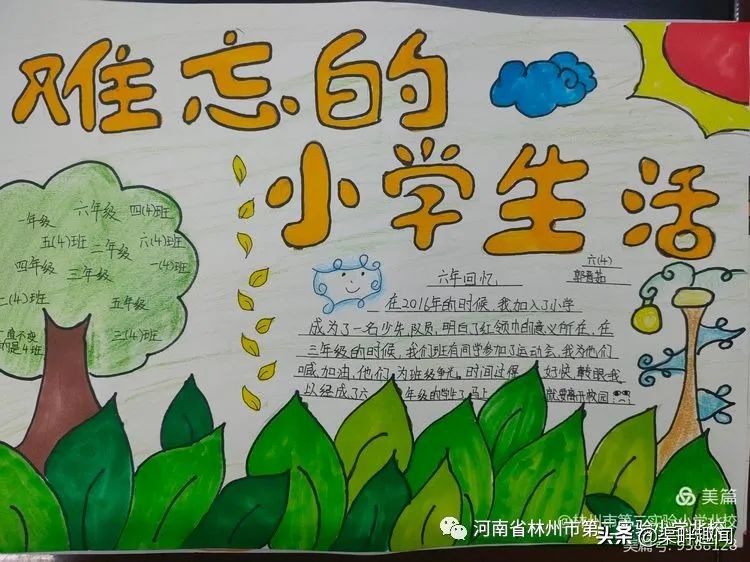 难忘的
小学生活
一年级 六年级 四(4)班
五(4)班 二年级 六(4)班
四年级 三年级 一(4)班
二(4)班 五年级
三(4)班
的是4班
六年回忆
六(4)
在2016年的时候,我加入了小学
成为了一名少先队员,明白了红领巾的意义所在,在
三年级的时候,我们班有同学参加了运动会,我为他们
喊加油,他们为班级争光。时间过得 好快,眨眼我
以经成了六年级的学生了,马上就要离开校园
美篇
@林州市第二实验小学北校
河南省林州市第
头条 @渠畔趣闻
美篇号: 9588128